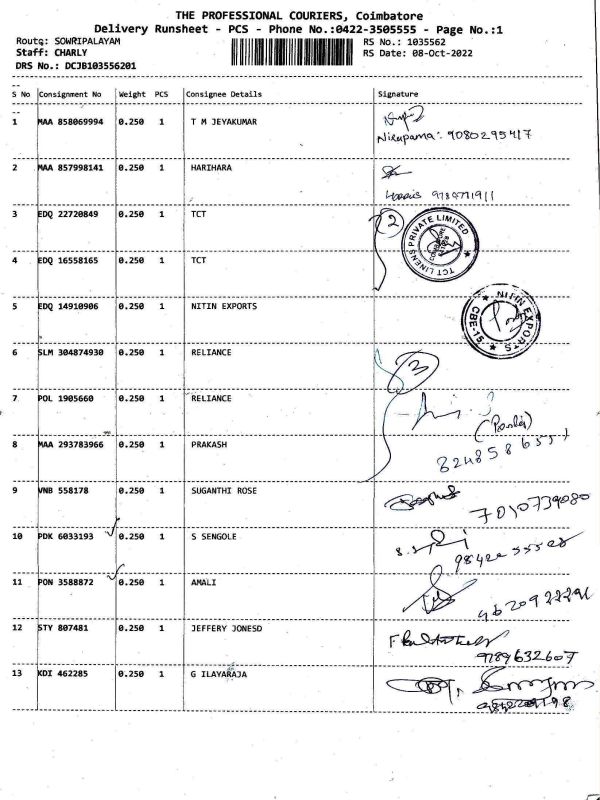 THE PROFESSIONAL COURIERS, Coimbatore
Delivery Runsheet - PCS - Phone No.:0422-3505555 - Page No.:1
Route: SOWRIPALAYAM RS No.: 1035562
Staff: CHARLY RS Date: 08-Oct-2022
DRS No.: DCJB103556201
S No Consignment No Weight PCS Consignee Details Signature
1 MAA 858069994 0.250 1 T M JEYAKUMAR
Nirupama: 9080295417
2 MAA 857998141 0.250 1 HARIHARA
3 EDQ 22720849 0.250 1 TCT
2
TCT LINENS PRIVATE LIMITED
COIMBATORE
4 EDQ 16558165 0.250 1 TCT
5 EDQ 14910906 0.250 1 NITIN EXPORTS
NITIN EXPORTS
CBE-15
6 SLM 304874930 0.250 1 RELIANCE
3
7 POL 1905660 0.250 1 RELIANCE
8 MAA 293783966 0.250 1 PRAKASH
9 VNB 558178 0.250 1 SUGANTHI ROSE
7010739080
10 PDK 6033193 0.250 1 S SENGOLE
11 PON 3588872 0.250 1 AMALI
12 STY 807481 0.250 1 JEFFERY JONESD
9789632607
13 KDI 462285 0.250 1 G ILAYARAJA